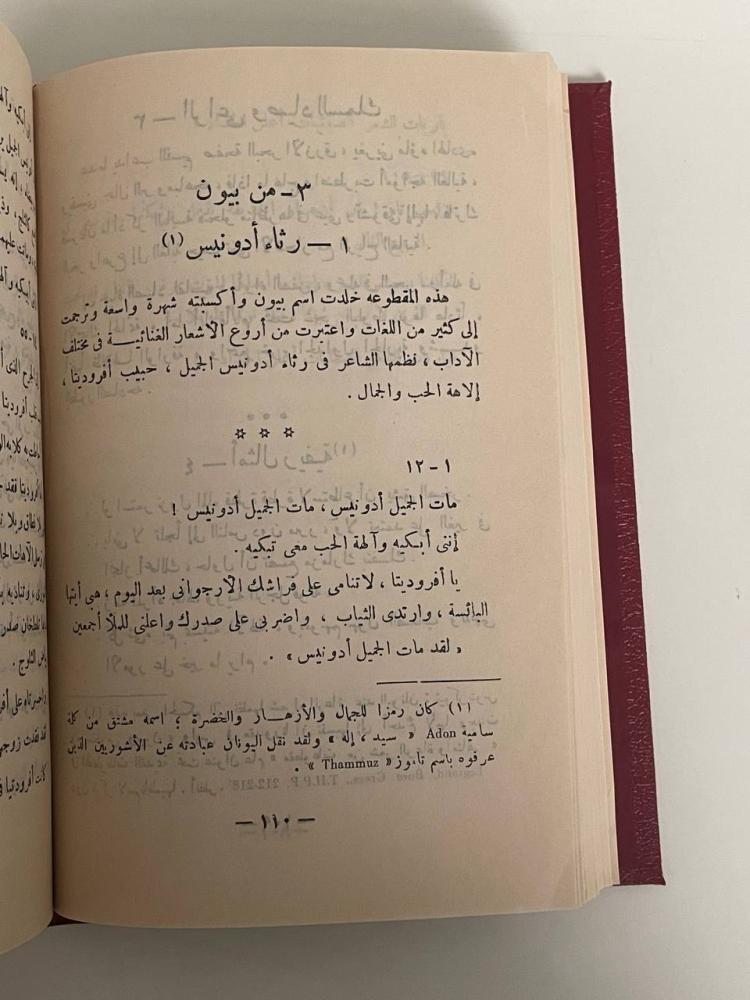 ٣ - من بيون
١ - رثاء أدونيس (١)
هذه المقطوعه خلدت اسم بيون وأكسبته شهرة واسعة وترجمت
إلى كثير من اللغات واعتبرت من أروع الأشعار الغنائية فى مختلف
الآداب ، نظمها الشاعر فى رثاء أدونيس الجميل ، حبيب أفروديتا ،
إلاهة الحب والجمال .
* * *
١ - ١٢
مات الجميل أدونيس ، مات الجميل أدونيس !
إننى أبكيه وآلهة الحب معى تبكيه .
يا أفروديتا ، لاتنامى على فراشك الأرجوانى بعد اليوم ، هبى أيتها
البائسة ، وارتدى الثياب ، واضربى على صدرك واعلنى للملأ أجمعين
« لقد مات الجميل أدونيس » .
(١) كان رمزا للجمال والأزهار والخضرة ؛ اسمه مشتق من كلمة
سامية Adon « سيد ، إله » ولقد نقل اليونان عبادته عن الأشوريين الذين
عرفوه باسم تاموز « Thammuz » .
— ١١٠ —